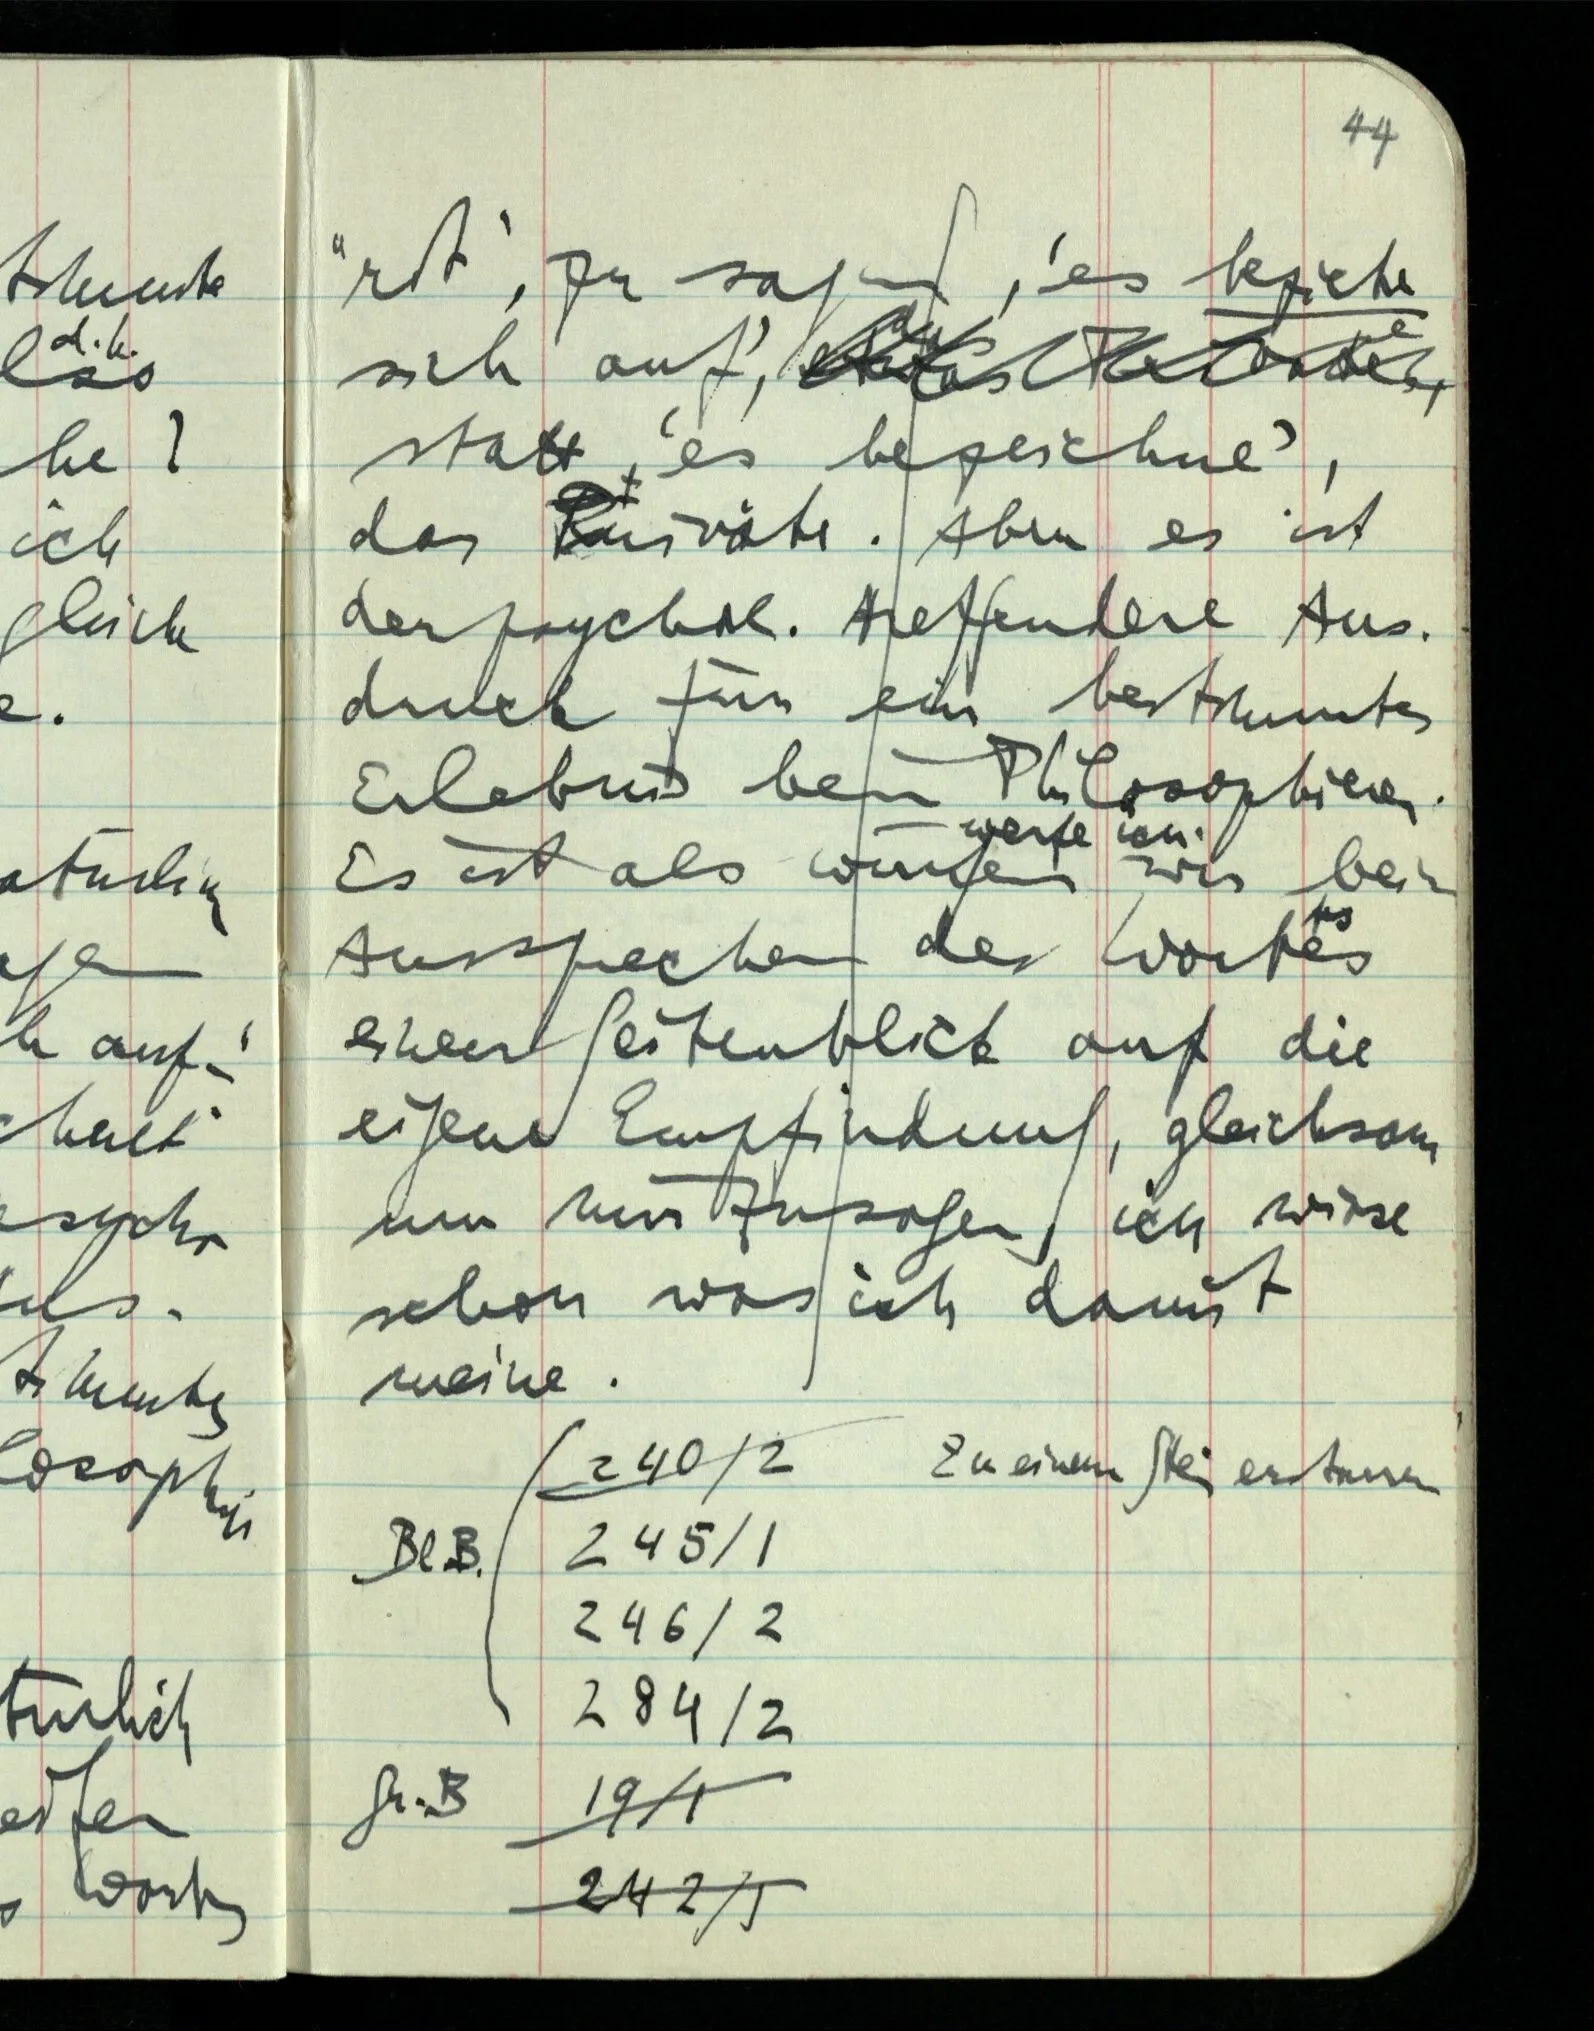 timmte
d.h.
also
he?
ich
gleich
e.
atürlich
h auf-'
psycho
Aus-
timmtes
losophi
türlich
erfen
s Wortes
44
"rot", zu sagen, 'es beziehe
sich auf', das Private,
statt, 'es bezeichne',
das Private. Aber es ist
der psychol. treffendere Aus-
druck für ein bestimmtes
Erlebnis beim Philosophieren.
werfe ich
Es ist als würfen wir beim
Aussprechen des Wortes
einen Seitenblick auf die
eigene Empfindung, gleichsam
um mir zu sagen, ich wisse
schon was ich damit
meine.
240/2 Zu einem Stein erstarren
Bl.B. 245/1
246/2
284/2
Gr.B 19/1
242/5